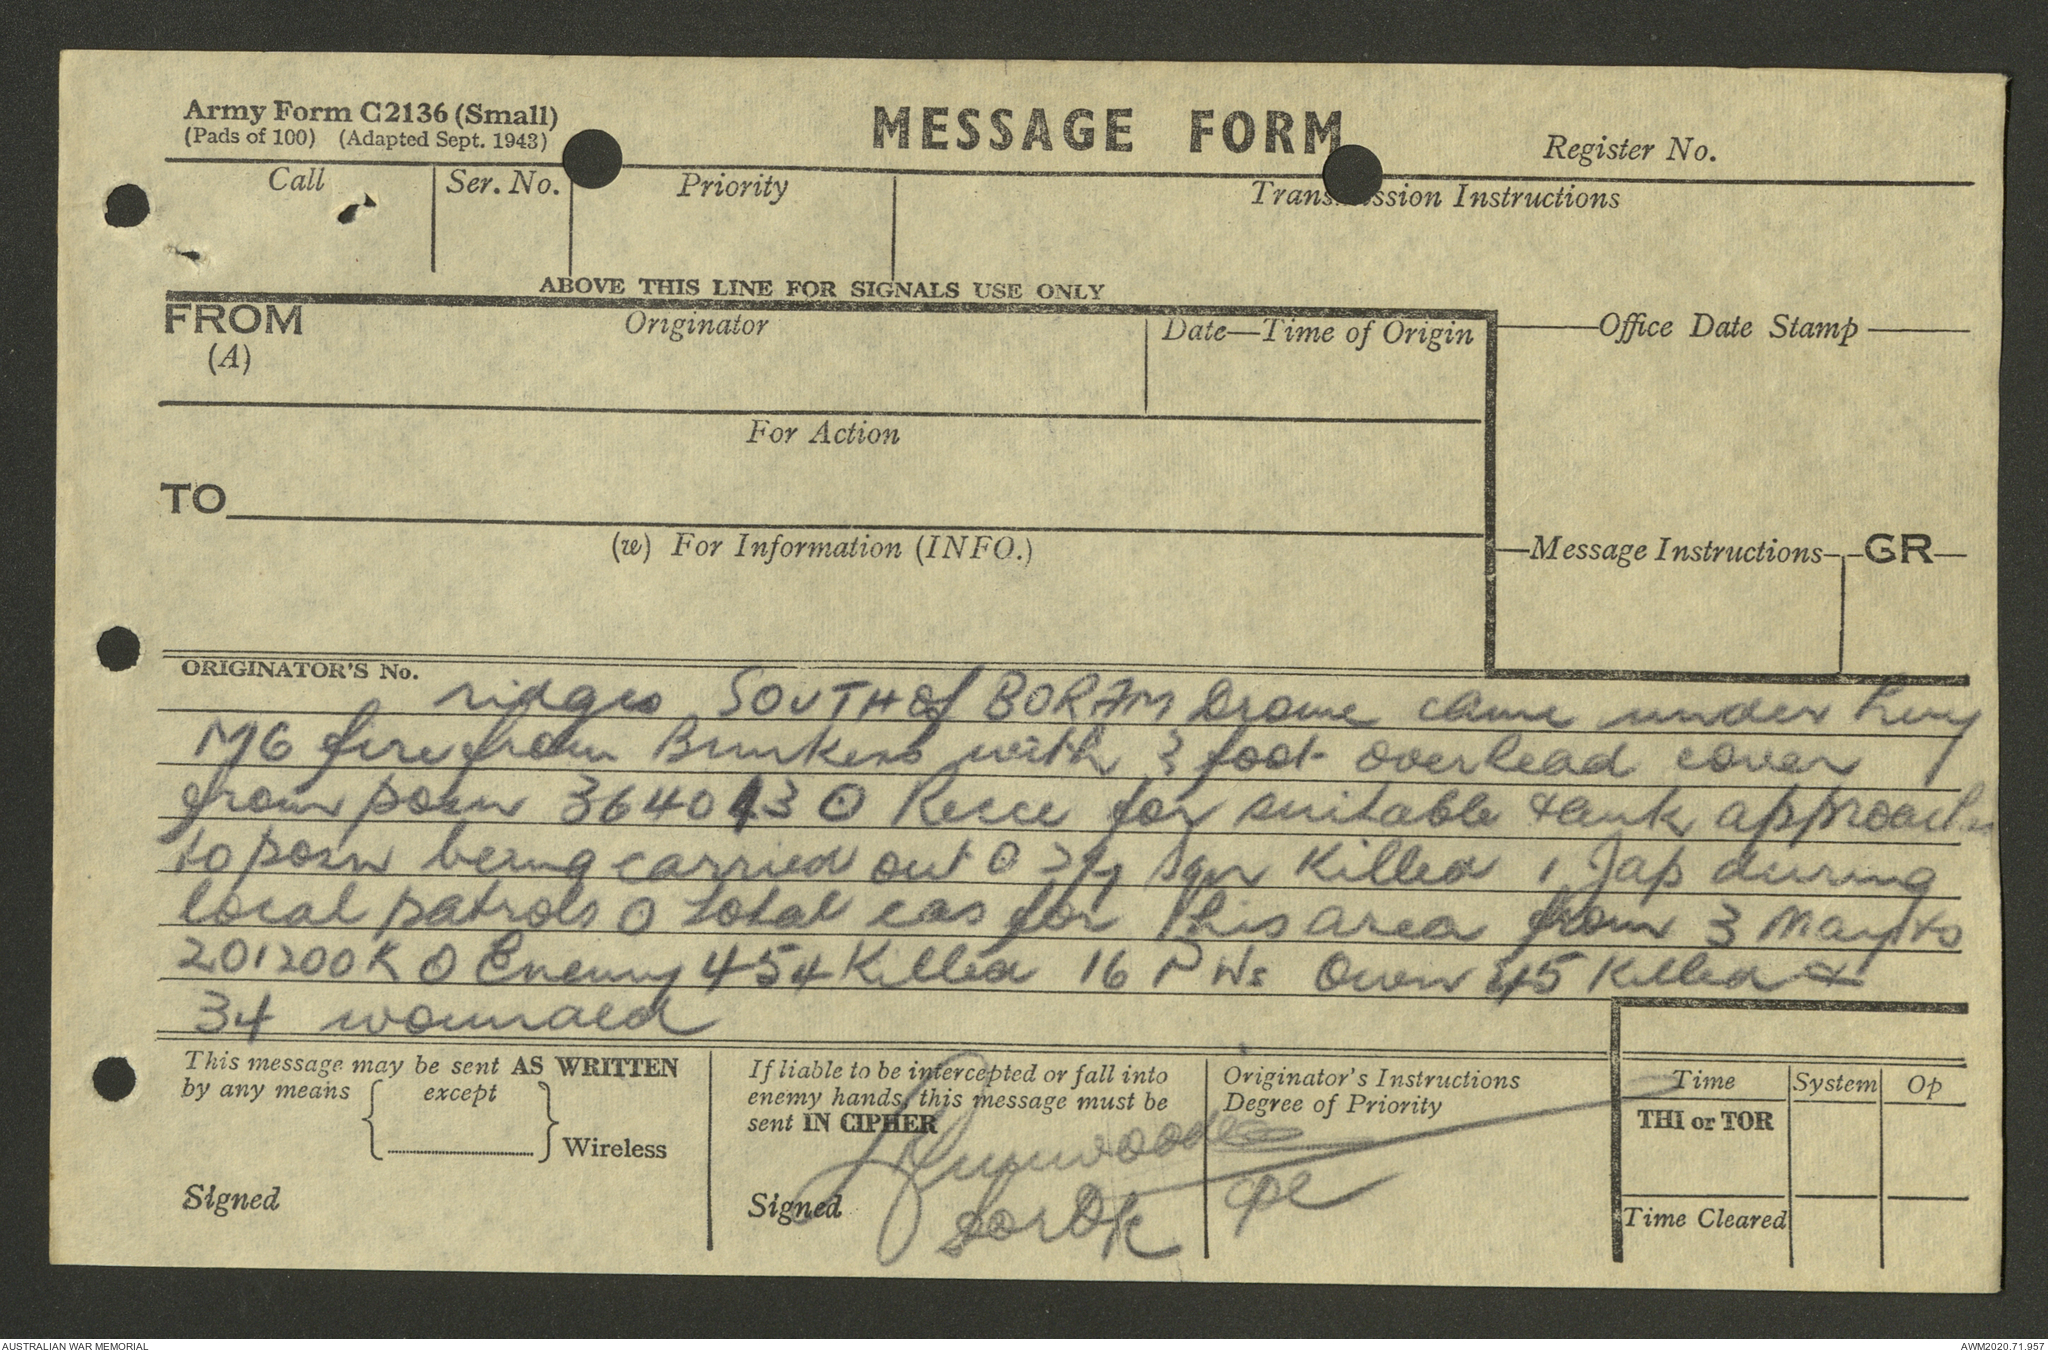 Army Form C2136 (Small)
(Pads of 100) (Adapted Sept. 1943)
MESSAGE FORM
Register No.
Call
Ser. No.
Priority
Transmission Instructions
ABOVE THIS LINE FOR SIGNALS USE ONLY
FROM
(A)
Originator
Date—Time of Origin
Office Date Stamp
For Action
TO
(w) For Information (INFO.)
Message Instructions
GR
ORIGINATOR'S No.
ridges SOUTH of BORAM Drome came under hvy
MG fire from Bunkers with 3 foot overhead cover
from posn 364013 O Recce for suitable tank approaches
to posn being carried out O Sqn Killed 1 Jap during
local patrols O total cas for this area from 3 May to
201200K O Enemy 454 Killed 16 PWs Own 45 Killed &
34 wounded
This message may be sent AS WRITTEN
by any means
except
Wireless
Signed
If liable to be intercepted or fall into
enemy hands, this message must be
sent IN CIPHER
Signed
for
Originator's Instructions
Degree of Priority
Time
System
Op
THI or TOR
Time Cleared
AUSTRALIAN WAR MEMORIAL
AWM2020.71.957